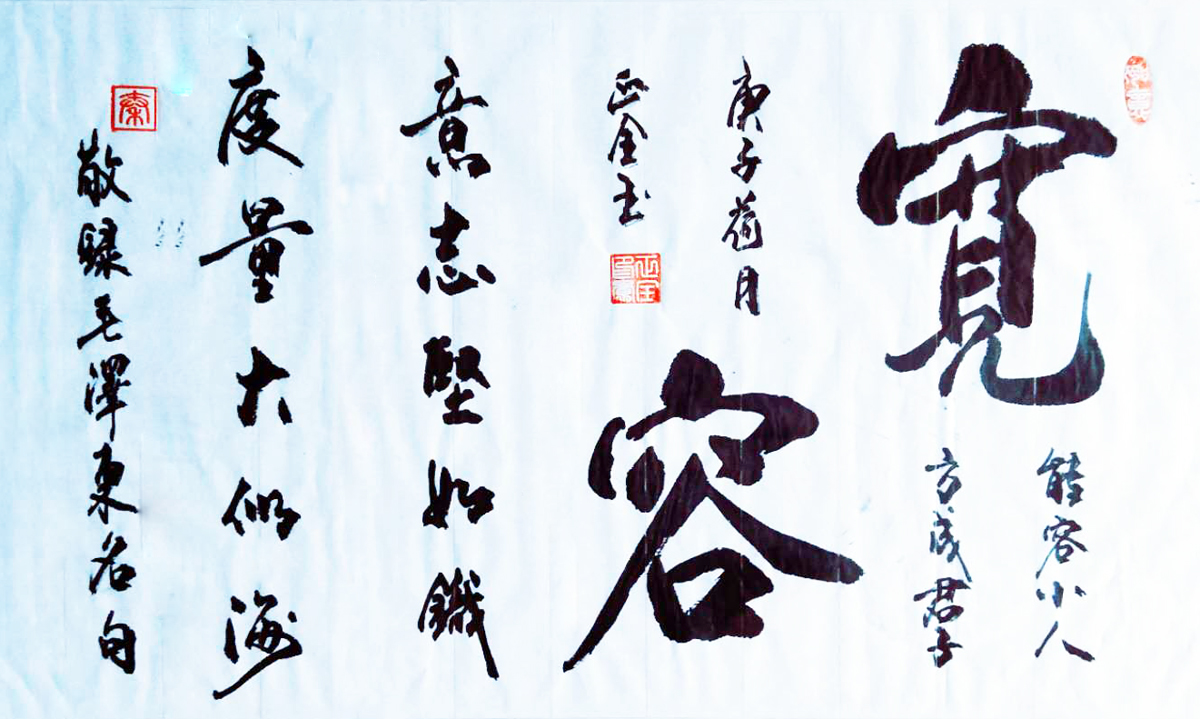 寬
能容小人
方成君子
庚子荷月
正全玉
容
意志堅如鐵
度量大似海
敬録毛澤東名句
秦